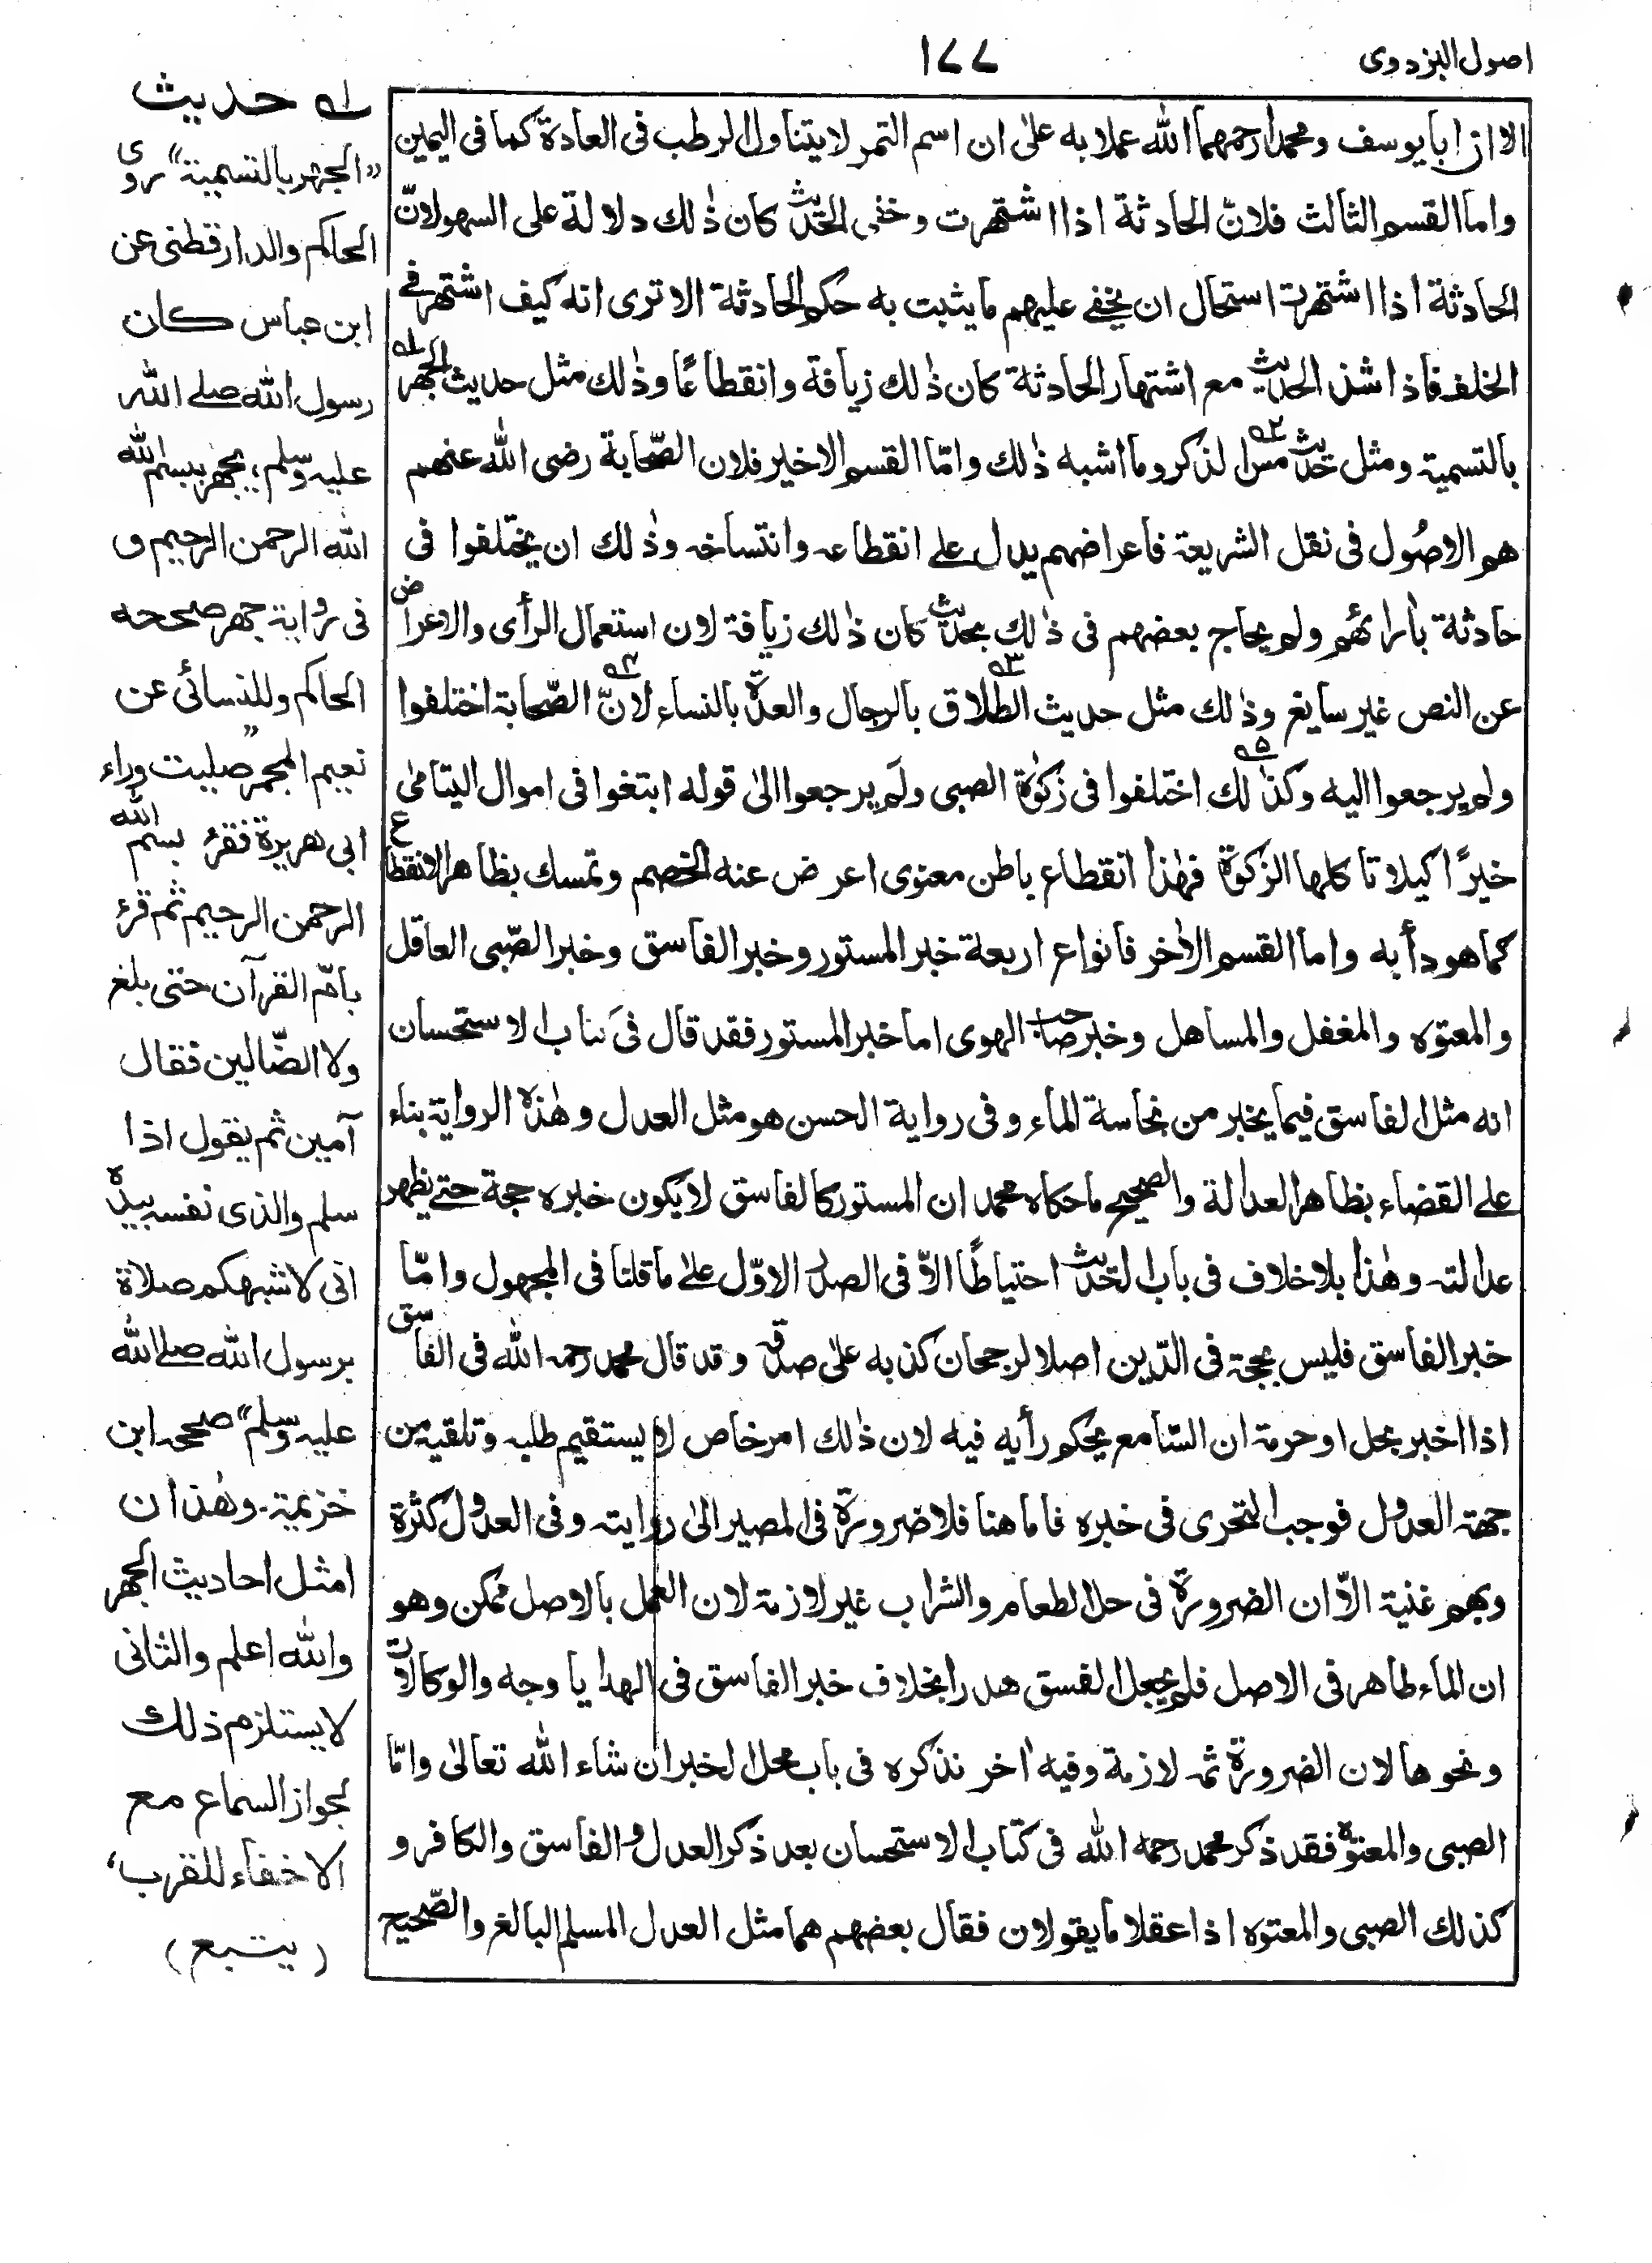 اصول البزدوى
١٧٧
الا ان ابا يوسف ومحمدا رحمهما الله عملا به علىٰ ان اسم التمر لا يتناول الرطب فى العادة كما فى اليمين
واما القسم الثالث فلانّ الحادثة اذا اشتهرت وخفى الحديث كان ذٰلك دلالة على السهو لانّ
الحادثة اذا اشتهرت استحال ان يخفے عليهم ما يثبت به حكم الحادثة الا ترى انه كيف اشتهر فے
الخلف فاذا شذ الحديث مع اشتهار الحادثة كان ذٰلك زيافة وانقطاعًا وذٰلك مثل حديث الجهر ١ه
بالتسمية ومثل حديث مس ٢ه الذكر وما اشبه ذٰلك وامّا القسم الاخير فلان الصّحابة رضى الله عنهم
هم الاصُول فى نقل الشريعة فاعراضهم يدل علے انقطاعه وانتساخه وذٰلك ان يختلفوا فى
حادثة بآرائهم ولم يحاج بعضهم فى ذٰلك بحديث كان ذٰلك زيافة لان استعمال الرأى والاعراض
عن النص غير سايغ وذٰلك مثل حديث الطلاق ٣ه بالرجال والعدّة بالنساء ٤ه لانّ الصّحابة اختلفوا
ولم يرجعوا اليه وكذٰلك ٥ه اختلفوا فى زكوٰة الصبى ولم يرجعوا الىٰ قوله ابتغوا فى اموال اليتامىٰ
خيرًا كيلا تاكلها الزكوٰة فهٰذا انقطاع باطن معنوى اعرض عنه الخصم وتمسك بظاهر الانقطاع
كما هو دأبه واما القسم الاٰخر فانواع اربعة خبر المستور وخبر الفاسق وخبر الصّبى العاقل
والمعتوه والمغفل والمساهل وخبر صاحب الهوى اما خبر المستور فقد قال فى كتاب الاستحسان
انه مثل الفاسق فيما يخبر من نجاسة الماء وفى رواية الحسن هو مثل العدل وهٰذه الرواية بناء
علے القضاء بظاهر العدالة والصحيح ما حكاه محمد ان المستور كالفاسق لا يكون خبره حجة حتے يظهر
عدالته وهٰذا بلا خلاف فى باب الحديث احتياطًا الّا فى الصدر الاوّل علىٰ ما قلنا فى المجهول وامّا
خبر الفاسق فليس بحجة فى الدّين اصلا لرجحان كذبه علىٰ صدقه وقد قال محمد رحمه الله فى الفاسق
اذا اخبر بحل او حرمة ان السّامع يحكم رأيه فيه لان ذٰلك امر خاص لا يستقيم طلبه وتلقيه من
جهة العدول فوجب التحرى فى خبره فاما هنا فلا ضرورة فى المصير الىٰ روايته وفى العدول كثرة
وبهم غنية الّا ان الضرورة فى حل الطعام والشراب غير لازمة لان العمل بالاصل ممكن وهو
ان الماء طاهر فى الاصل فلم يجعل الفسق هدرا بخلاف خبر الفاسق فى الهدايا وجه والوكالات
ونحوها لان الضرورة ثمه لازمة وفيه اٰخر نذكره فى باب محل الخبر ان شاء الله تعالىٰ وامّا
الصبى والمعتوه فقد ذكر محمد رحمه الله فى كتاب الاستحسان بعد ذكر العدل والفاسق والكافر و
كذلك الصبى والمعتوه اذا عقلا ما يقولان فقال بعضهم هما مثل العدل المسلم البالغ والصّحيح
١ه حديث
"الجهر بالتسمية" روى
الحاكم والدارقطنى عن
ابن عباس كان
رسول الله صلے الله
عليه وسلم؛ يجهر ببسم الله
الله الرحمن الرحيم و
فى رواية جهر صححه
الحاكم وللنسائى عن
نعيم المجمر "صليت وراء
ابى هريرة فقرء بسم الله
الرحمن الرحيم ثم قرء
بامّ القرآن حتى بلغ
ولا الضّالين فقال
آمين ثم يقول اذا
سلم والذى نفسه بيده
انى لاشبهكم صلاة
برسول الله صلے الله
عليه وسلم" صححه ابن
خزيمة۔ وهٰذان
امثل احاديث الجهر
والله اعلم والثانى
لا يستلزم ذلك
لجواز السماع مع
الاخفاء للقرب،
(يتبع)